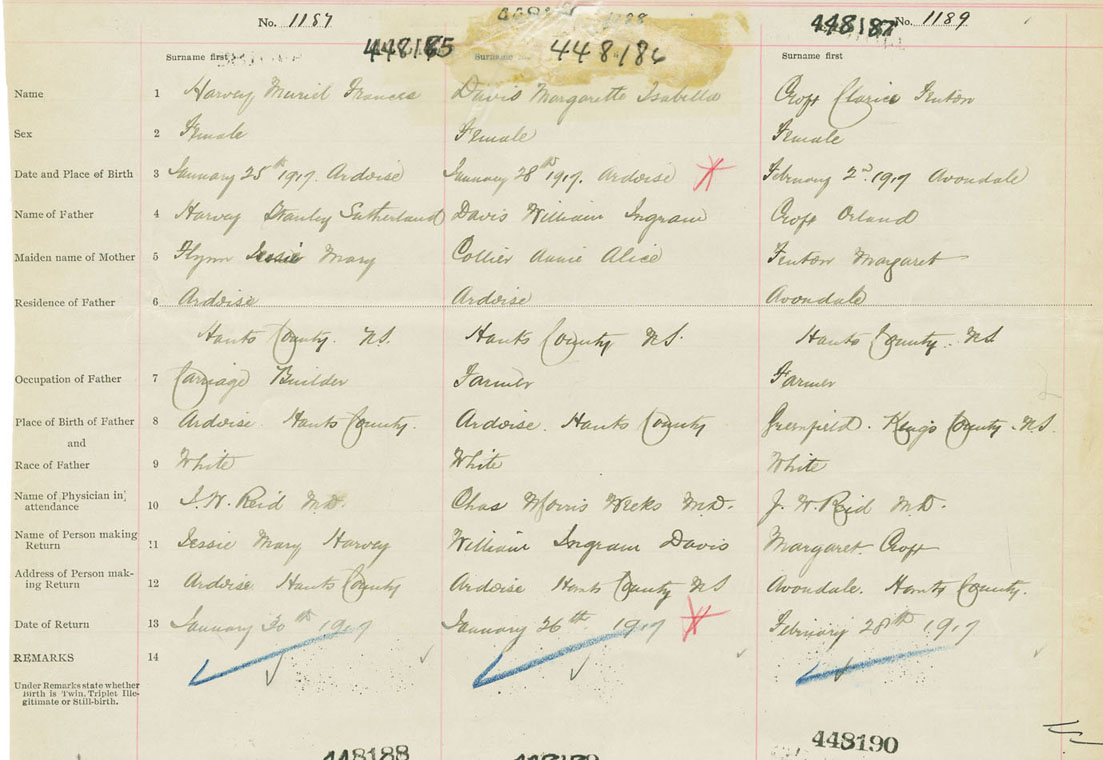 No. 1187
448185
448186
448187
No. 1189
Surname first
Surname
Surname first
Name 1 Harvey Muriel Frances Davis Margarette Isabella Croft Clarice Fenton
Sex 2 Female Female Female
Date and Place of Birth 3 January 25th 1917. Ardoise January 28th 1917. Ardoise February 2nd 1917 Avondale
Name of Father 4 Harvey Stanley Sutherland Davis William Ingram Croft Orland
Maiden name of Mother 5 Flynn Jessie Mary Collier Annie Alice Fenton Margaret
Residence of Father 6 Ardoise Ardoise Avondale
Hants County. N.S. Hants County N.S. Hants County. N.S
Occupation of Father 7 Carriage Builder Farmer Farmer
Place of Birth of Father 8 Ardoise. Hants County. Ardoise. Hants County Greenfield. Kings County. N.S.
and
Race of Father 9 White White White
Name of Physician in attendance 10 J. W. Reid M.D. Chas Morris Weeks M.D. J. W. Reid M.D.
Name of Person making Return 11 Jessie Mary Harvey William Ingram Davis Margaret Croft
Address of Person mak-
ing Return 12 Ardoise. Hants County Ardoise Hants County N S Avondale. Hants County.
Date of Return 13 January 30th 1917 January 26th 1917 February 28th 1917
REMARKS 14
Under Remarks state whether
Birth is Twin, Triplet Ille-
gitimate or Still-birth.
448188
448190